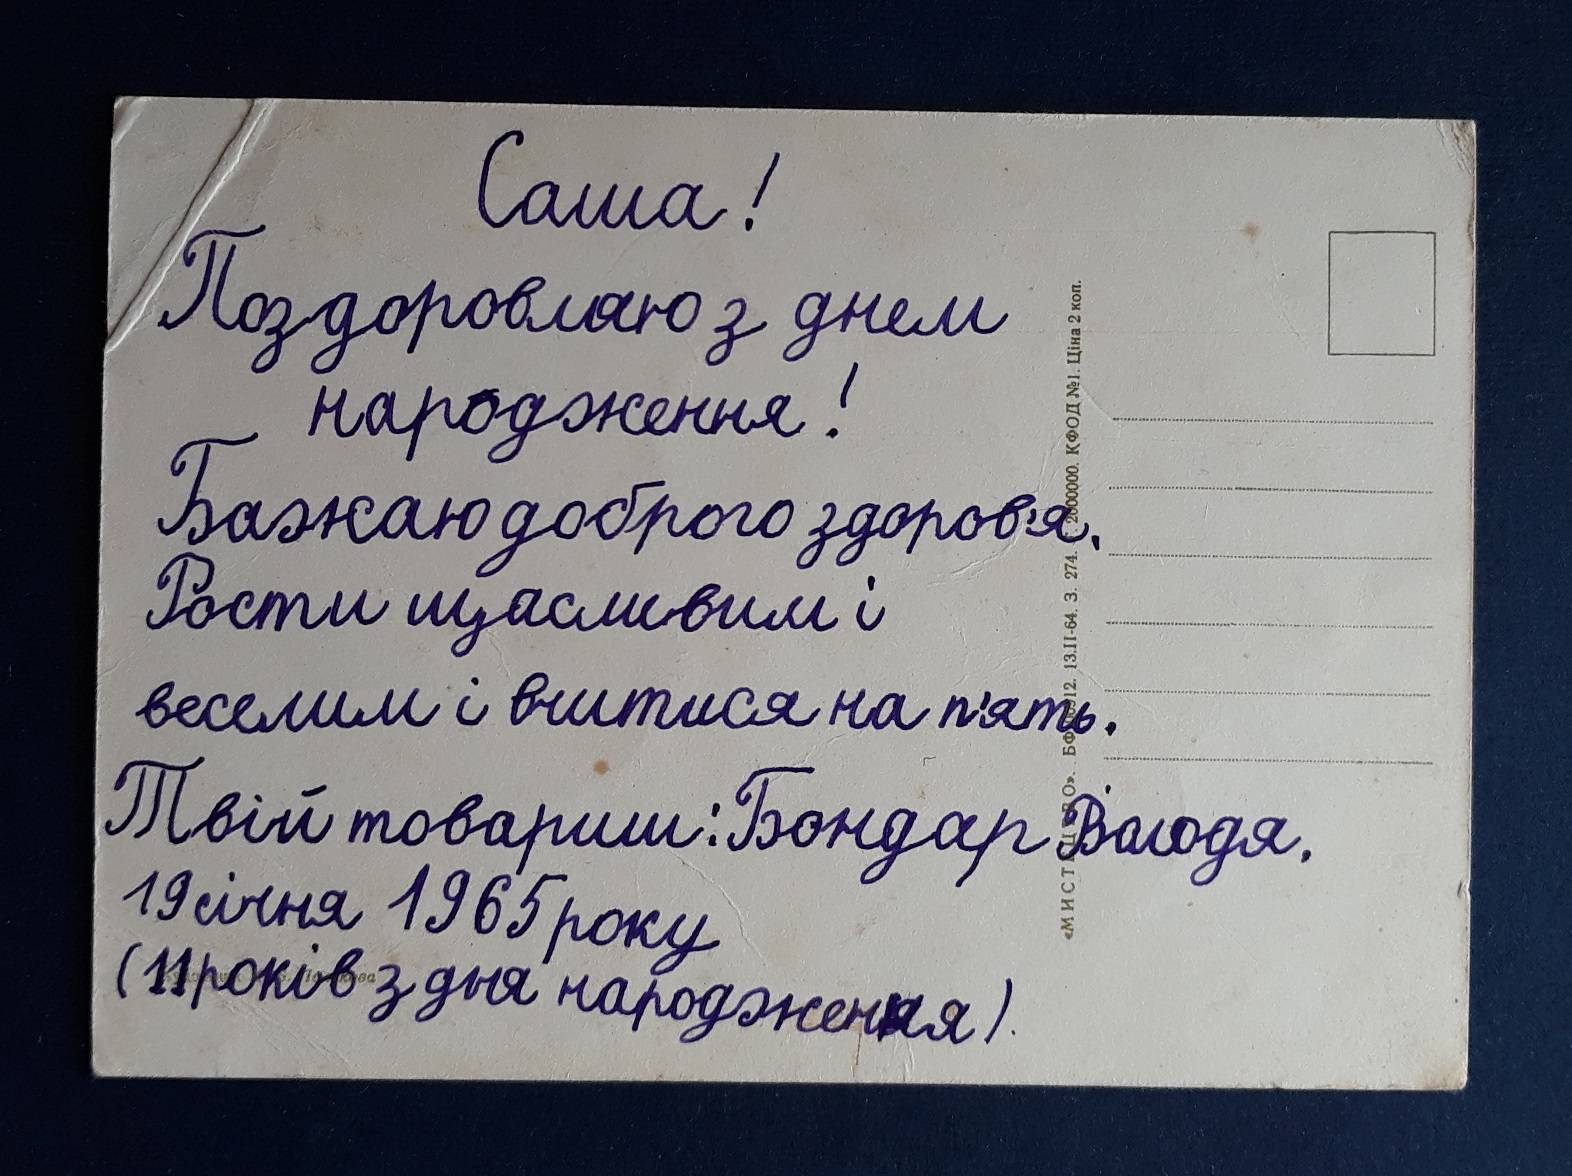 Саша!
Поздоровляю з днем
народження!
Бажаю доброго здоров'я.
Рости щасливим і
веселим і вчитися на п'ять.
Твій товариш: Бондар Володя.
19 січня 1965 року
(11 років з дня народження).
«МИСТЕЦТВО». 13.II-64. З. 274. 2000000. КФОД №1. Ціна 2 коп.